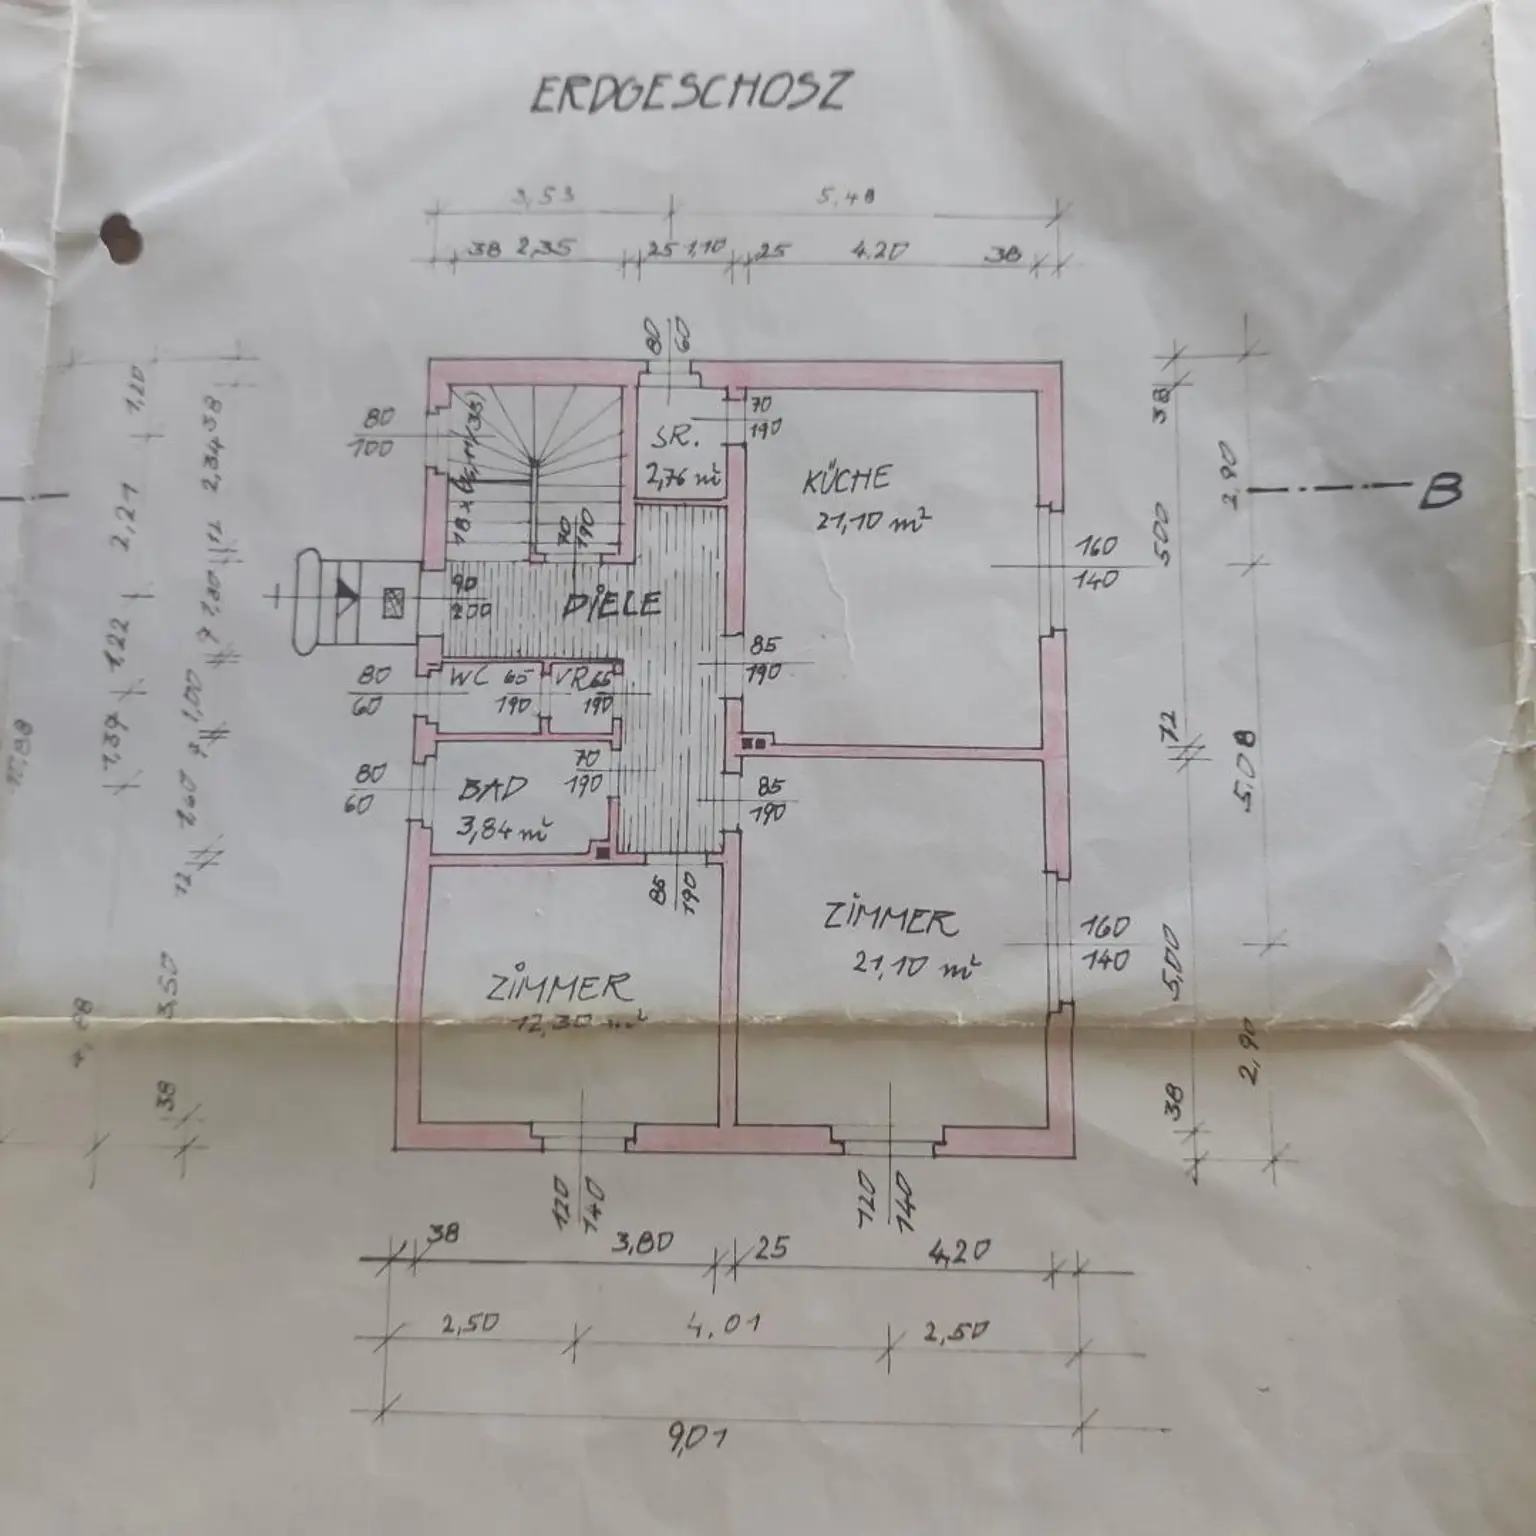 ERDGESCHOSZ
3,53 5,48
38 2,35 25 1,10 25 4.20 38
80
60
80
100
70
190
SR.
2,76 m²
KÜCHE
21,10 m²
70
190
90
200
DIELE
160
140
B
85
190
80
60
WC
65
190
VR
65
190
80
60
BAD
3,84 m²
70
190
85
190
85
190
ZIMMER
21,10 m²
160
140
ZIMMER
12,30 m²
120
140
120
140
38
500
72
5,00
38
2,90
5,08
2,90
1,20
2,21
1,22
1,39
38
1,00
12
3,50
38
38 3,80 25 4,20
2,50 4,01 2,50
9,01